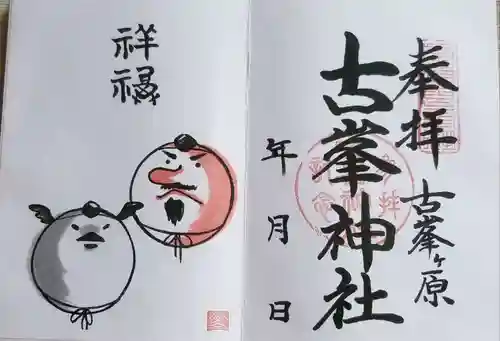 奉拝
古峯ヶ原
古峯神社
年 月 日
祥禄